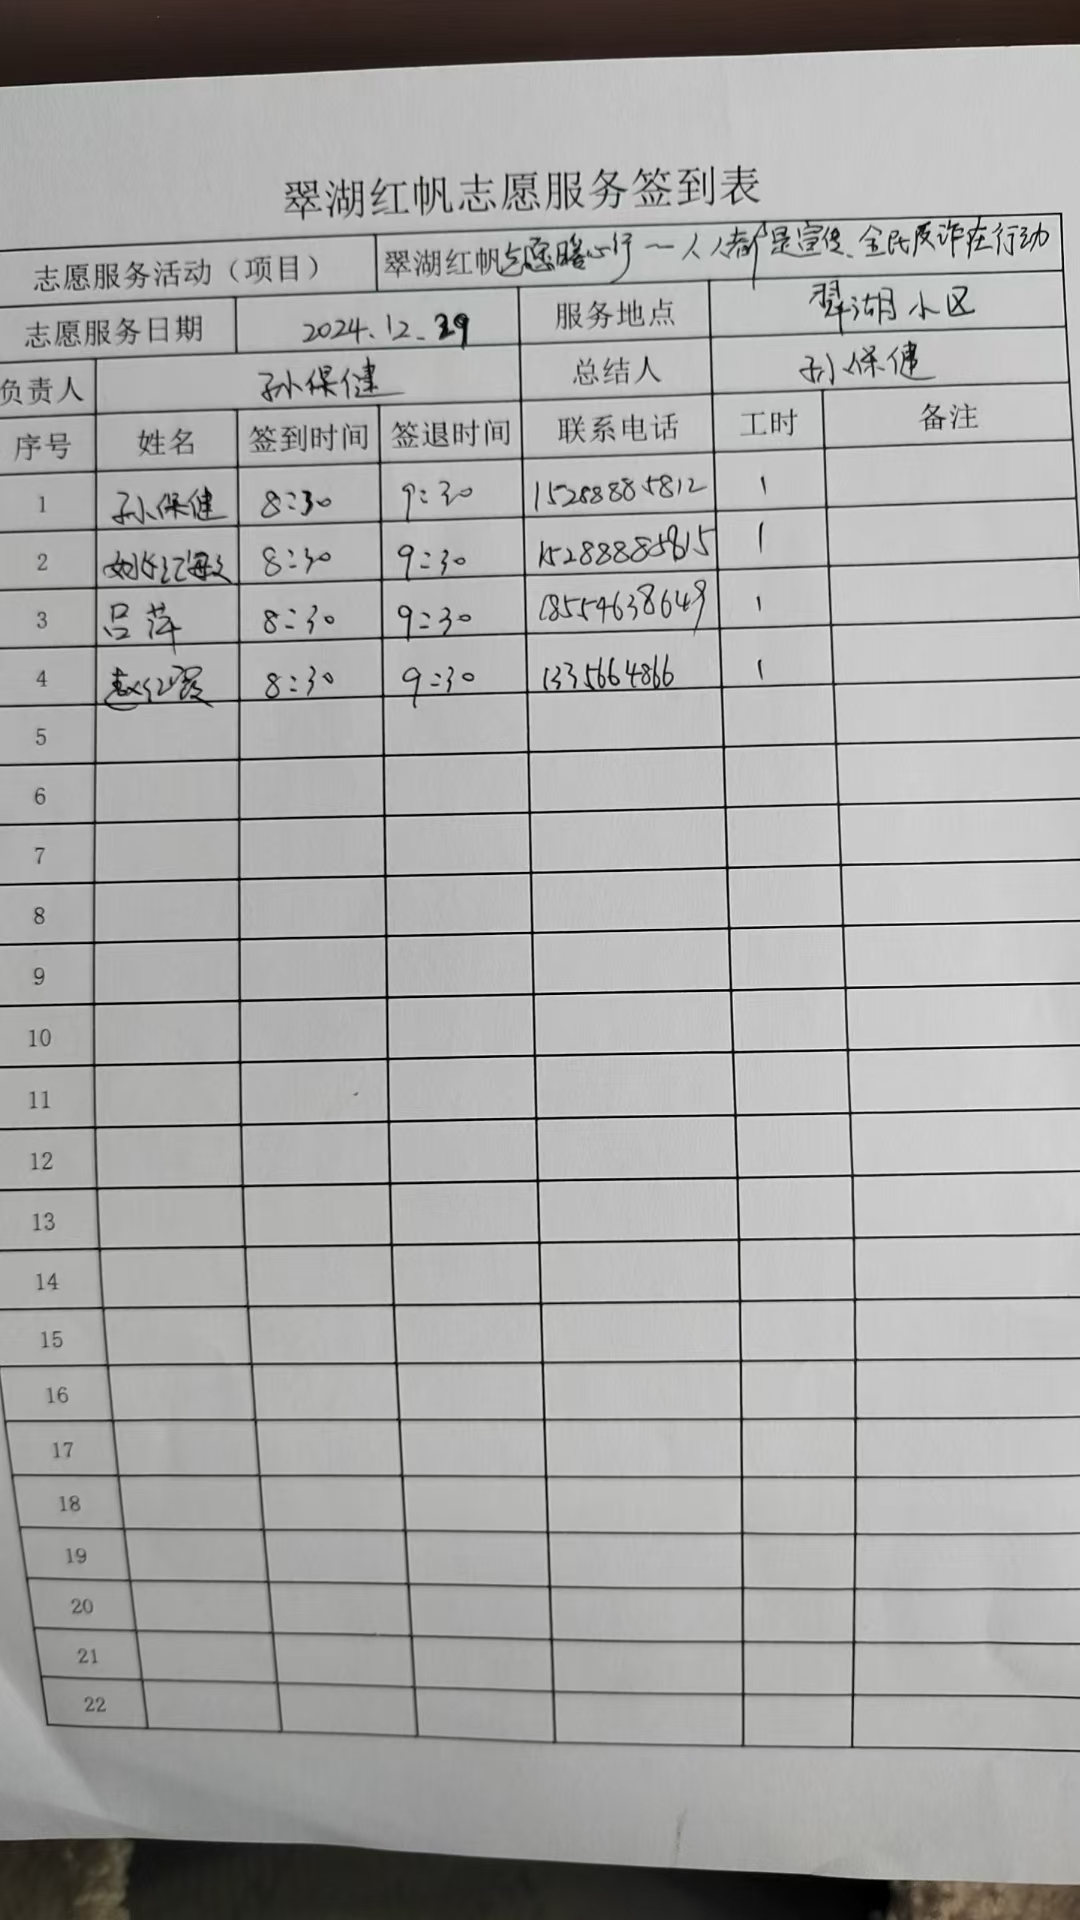 翠湖红帆志愿服务签到表
志愿服务活动（项目） 翠湖红帆志愿暖心行一人人都是宣传、全民反诈在行动
志愿服务日期 2024.12.29 服务地点 翠湖小区
负责人 孙保健 总结人 孙保健
序号 姓名 签到时间 签退时间 联系电话 工时 备注
1 孙保健 8:30 9:30 15288885812 1
2 姚红海 8:30 9:30 15288885815 1
3 吕萍 8:30 9:30 18554638649 1
4 赵红霞 8:30 9:30 1335664866 1
5
6
7
8
9
10
11
12
13
14
15
16
17
18
19
20
21
22